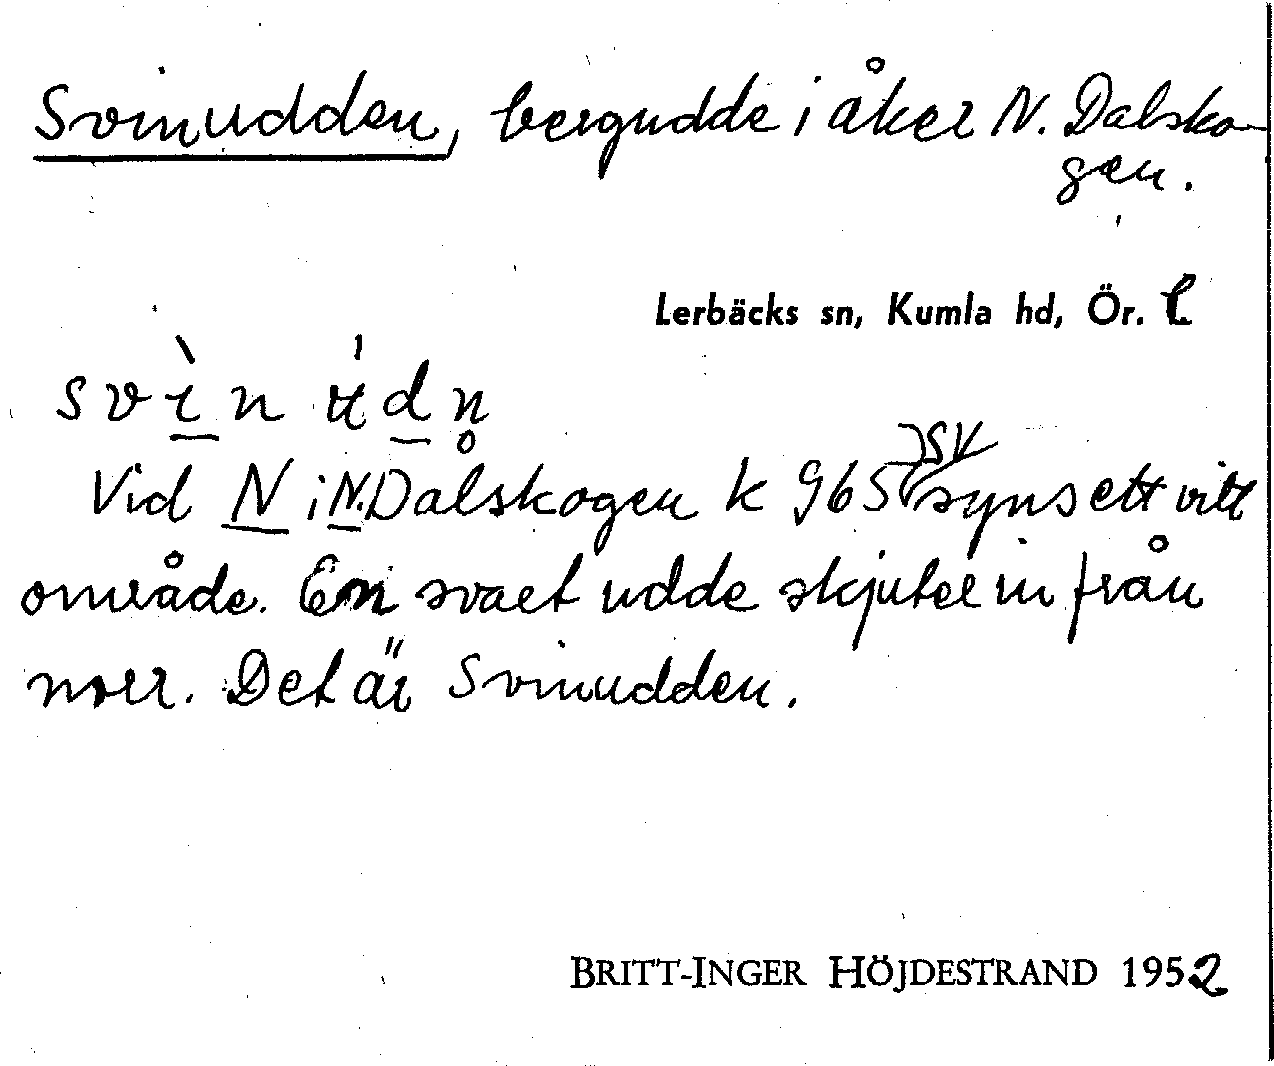 Svinudden, bergudde i åker N. Dalsko-
gen.
Lerbäcks sn, Kumla hd, Ör. l
svìn ʉ́dn̥
SV
Vid N i N. Dalskogen k 965 synsett vitt
område. En svart udde skjuter in från
norr. Det är Svinudden.
BRITT-INGER HÖJDESTRAND 1952